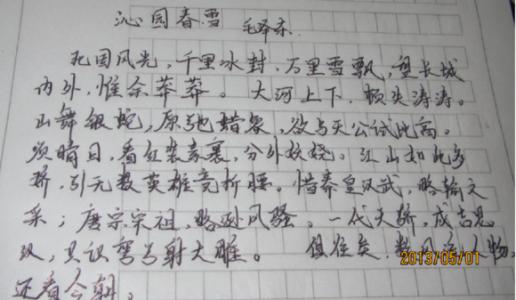 沁园春雪 毛泽东
北国风光，千里冰封，万里雪飘，望长城
内外，惟余莽莽。大河上下，顿失涛涛。
山舞银蛇，原驰蜡象，欲与天公试比高。
须晴日，看红装素裹，分外妖娆。江山如此多
娇，引无数英雄竞折腰。惜秦皇汉武，略输文
采；唐宗宋祖，略逊风骚。一代天骄，成吉思
汗，只识弯弓射大雕。俱往矣，数风流人物，
还看今朝。
2013/05/01